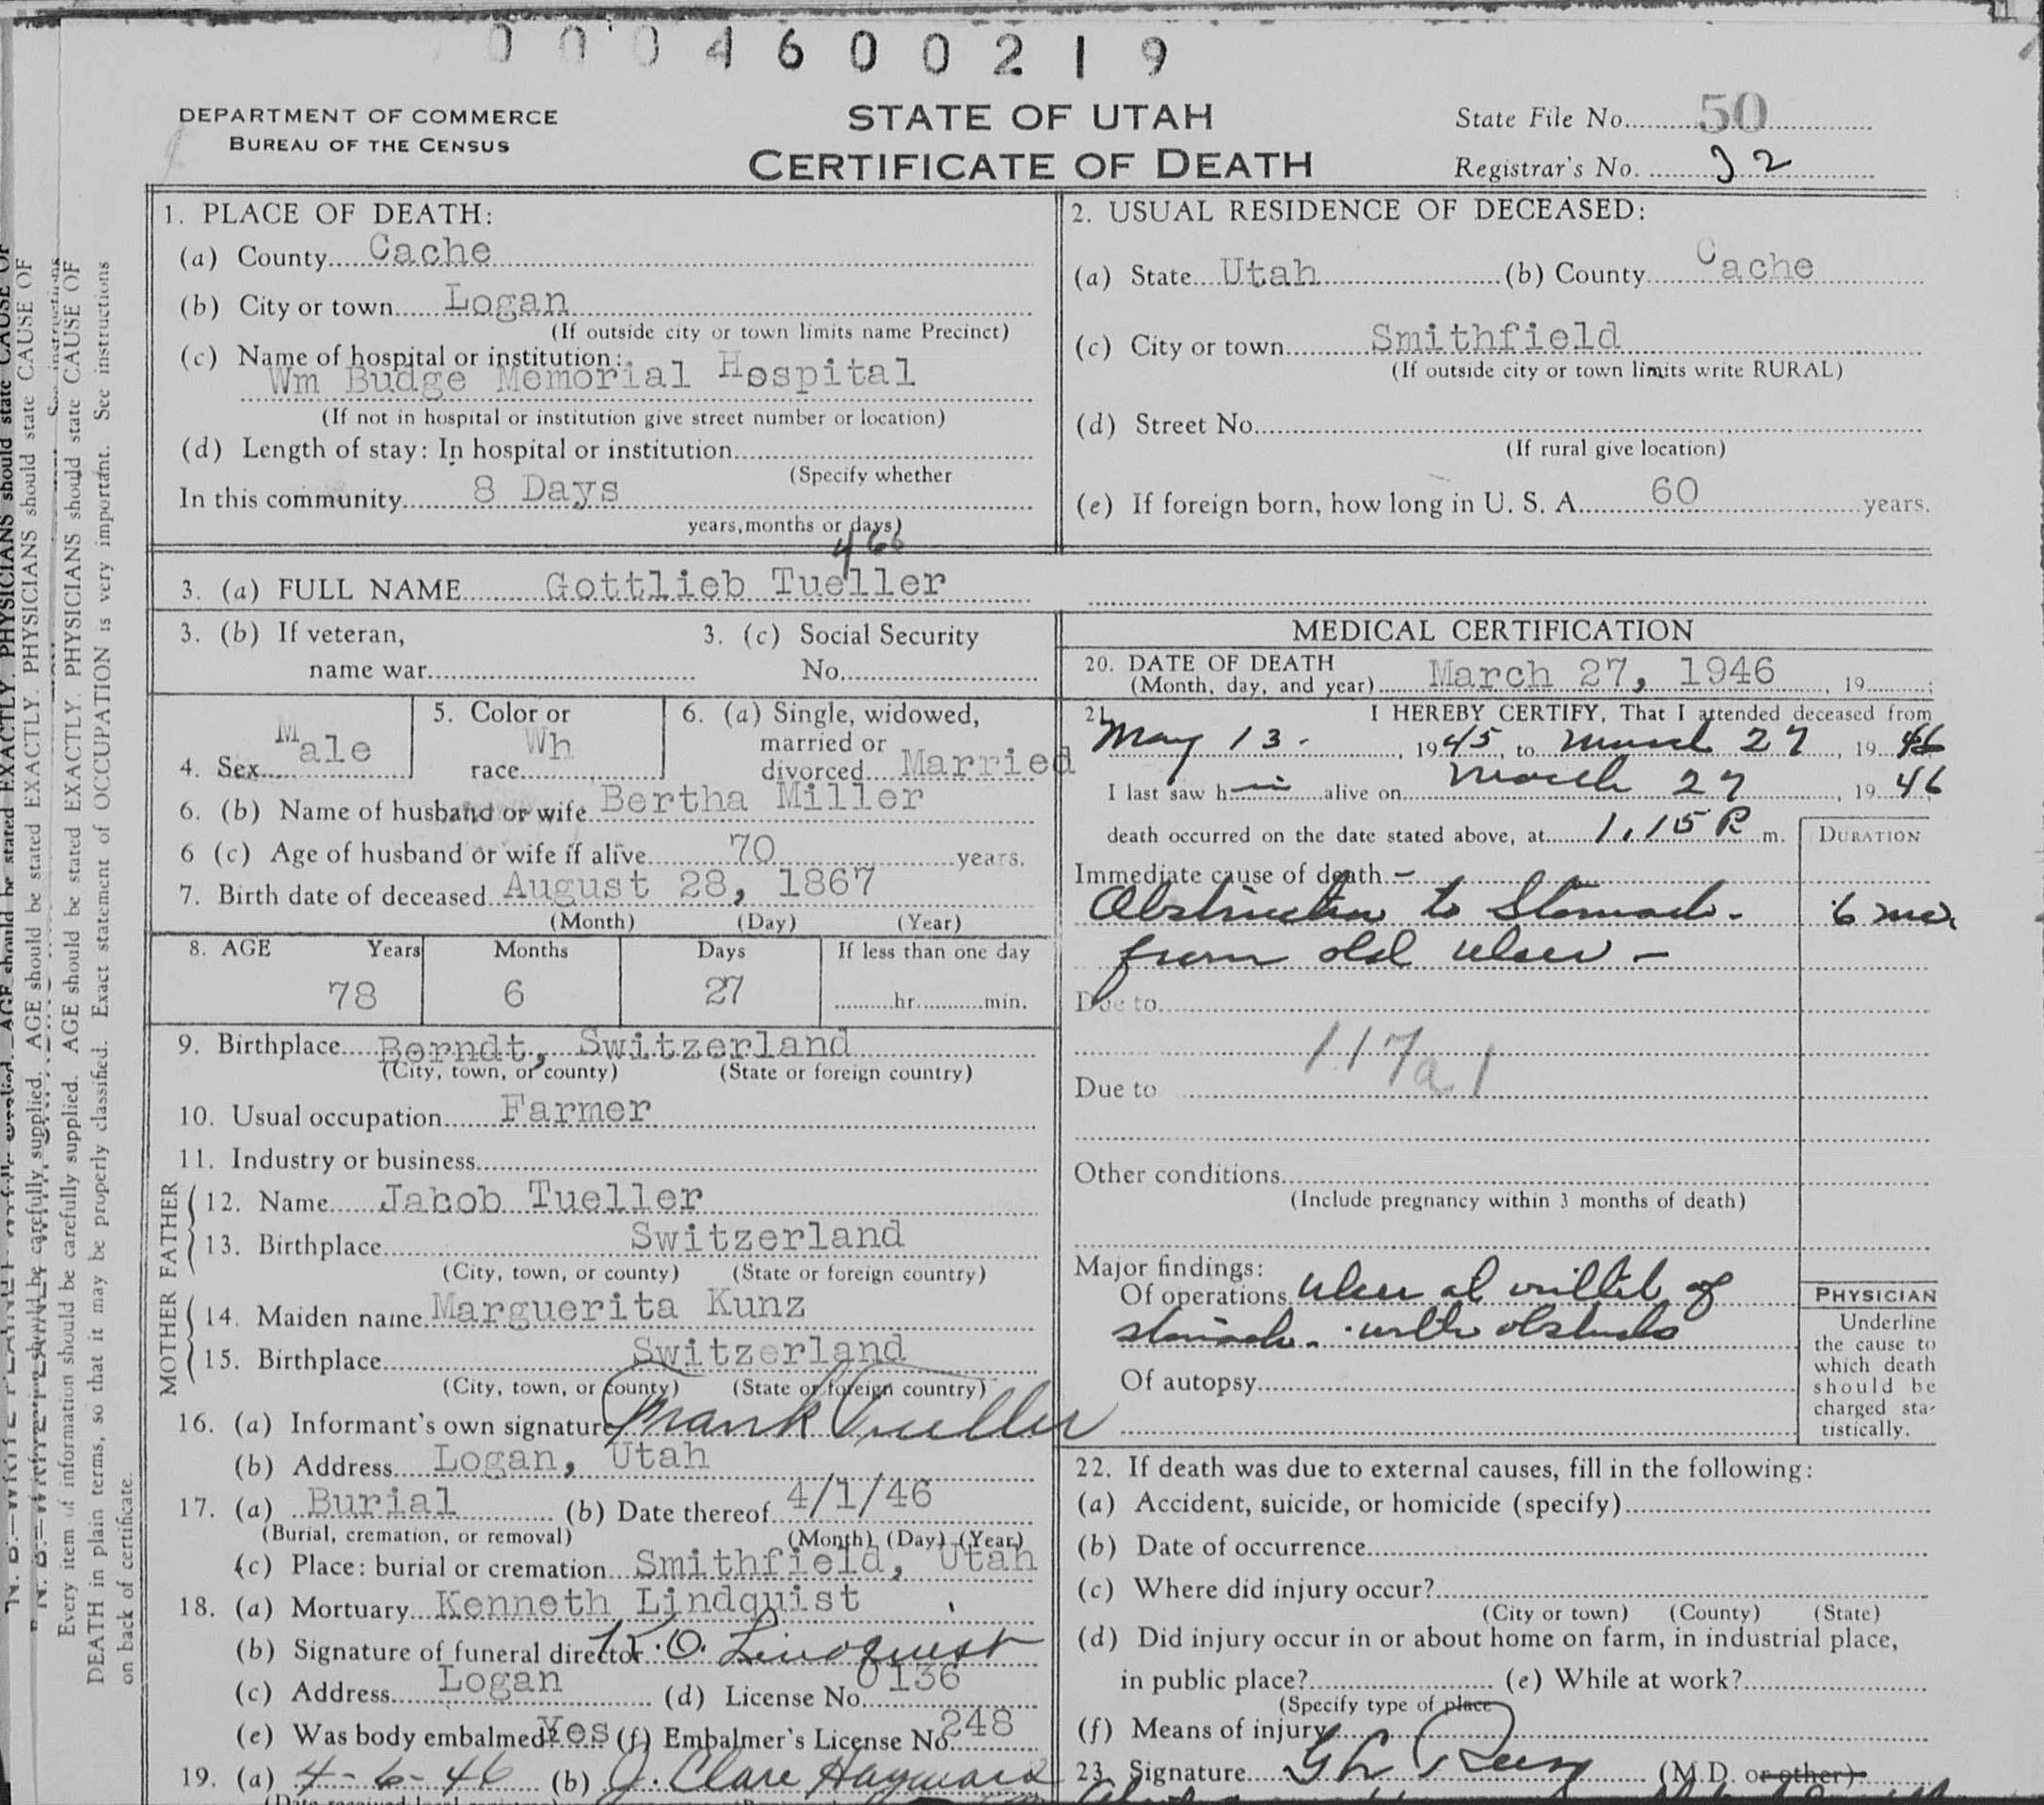 0004600219
DEPARTMENT OF COMMERCE
BUREAU OF THE CENSUS
STATE OF UTAH
CERTIFICATE OF DEATH
State File No. 50
Registrar's No. 32
1. PLACE OF DEATH:
(a) County Cache
(b) City or town Logan
(If outside city or town limits name Precinct)
(c) Name of hospital or institution:
Wm Budge Memorial Hospital
(If not in hospital or institution give street number or location)
(d) Length of stay: In hospital or institution
(Specify whether
In this community 8 Days
years, months or days)
2. USUAL RESIDENCE OF DECEASED:
(a) State Utah (b) County Cache
(c) City or town Smithfield
(If outside city or town limits write RURAL)
(d) Street No.
(If rural give location)
(e) If foreign born, how long in U. S. A. 60 years.
466
3. (a) FULL NAME Gottlieb Tueller
3. (b) If veteran,
name war
3. (c) Social Security
No.
4. Sex Male
5. Color or
race Wh
6. (a) Single, widowed,
married or
divorced Married
6. (b) Name of husband or wife Bertha Miller
6 (c) Age of husband or wife if alive 70 years.
7. Birth date of deceased August 28, 1867
(Month) (Day) (Year)
8. AGE Years Months Days If less than one day
78 6 27 hr. min.
9. Birthplace Berndt, Switzerland
(City, town, or county) (State or foreign country)
10. Usual occupation Farmer
11. Industry or business
FATHER
12. Name Jacob Tueller
13. Birthplace Switzerland
(City, town, or county) (State or foreign country)
MOTHER
14. Maiden name Marguerita Kunz
15. Birthplace Switzerland
(City, town, or county) (State or foreign country)
16. (a) Informant's own signature Frank Tueller
(b) Address Logan, Utah
17. (a) Burial (b) Date thereof 4/1/46
(Burial, cremation, or removal) (Month) (Day) (Year)
(c) Place: burial or cremation Smithfield, Utah
18. (a) Mortuary Kenneth Lindquist
(b) Signature of funeral director K. O. Lindquist
(c) Address Logan (d) License No. 0136
(e) Was body embalmed? Yes (f) Embalmer's License No. 248
19. (a) 4-6-46 (b) J. Clare Hayward
MEDICAL CERTIFICATION
20. DATE OF DEATH
(Month, day, and year) March 27, 1946, 19
21. I HEREBY CERTIFY, That I attended deceased from
May 13, 1945, to March 27, 1946
I last saw him alive on March 27, 1946
death occurred on the date stated above, at 1.15 P. m.
DURATION
Immediate cause of death
Obstruction to Stomach - 6 mo.
from old ulcer -
Due to
117a1
Due to
Other conditions
(Include pregnancy within 3 months of death)
Major findings:
Of operations Ulcer at outlet of
stomach - with
Of autopsy
PHYSICIAN
Underline
the cause to
which death
should be
charged sta-
tistically.
22. If death was due to external causes, fill in the following:
(a) Accident, suicide, or homicide (specify)
(b) Date of occurrence
(c) Where did injury occur?
(City or town) (County) (State)
(d) Did injury occur in or about home on farm, in industrial place,
in public place? (e) While at work?
(Specify type of place
(f) Means of injury
23. Signature (M.D. or other)
Every item of information should be carefully supplied. AGE should be stated EXACTLY. PHYSICIANS should state CAUSE OF
DEATH in plain terms, so that it may be properly classified. Exact statement of OCCUPATION is very important. See instructions
on back of certificate.